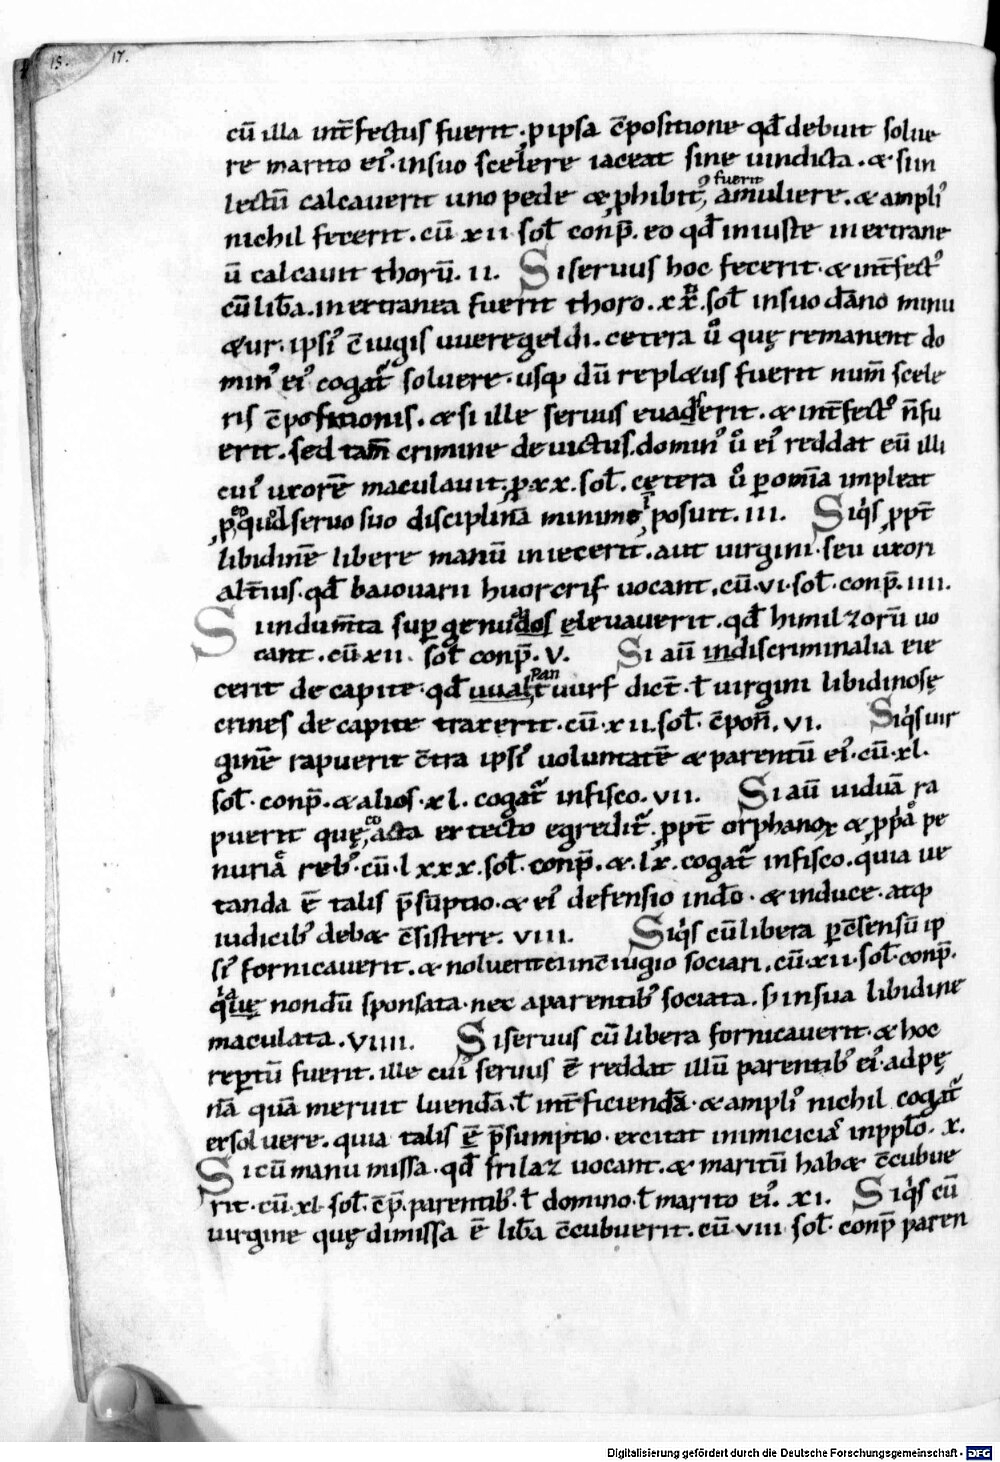 15. 17.
cū illa int̄fectus fuerit · p ipsa c̄positione qđ debuit solue
re marito ei᾽ · in suo scelere iaceat sine uindicta · & si in
lectū calcauerit uno pede & phibit᾽ fuerit a muliere · & ampli᾽
nichil fecerit · cū xii · sol̄ conp̄. eo qđ iniuste in extrane
ū calcauit thorū. ii. Si seruus hoc fecerit · & int̄fect᾽
cū lib̄a · in extranea fuerit thoro · xx · sol̄ in suo dāno minu
&ur · ipsi᾽ c̄iugis uueregeldi · cetera ů quę remanent do
min᾽ ei᾽ cogat᾽ soluere · usq; dū repl&us fuerit num̄ scele
ris c̄positionis. & si ille seruus euaserit. & int̄fect᾽ n̄ fu
erit. sed tam̄ crimine deuictus. domin᾽ ů ei᾽ reddat eū illi
cui᾽ uxorē maculauit · p xx. sol̄. cętera ů p omīa impleat
p eo quod seruo suo disciplinā minime īposuit. iii. Siq̇s ppt̄
libidinē libere manū iniecerit · aut uirgini · seu uxori
alt̄ius · qđ baiouarii huorcrif uocant · cū · vi · sol̄ · conp̄. iiii.
Si indum̄ta sup genudos eleuauerit · qđ himilzorū uo
cant · cū xii · sol̄ conp̄ · V. Si aū indiscriminalia eie
cerit de capite · qđ uualtuurf pan dict̄ · ł uirgini libidinosę
crines de capite traxerit · cū · xii · sol̄ · c̄pon̄. vi. Siq̇s uir
ginē rapuerit c̄tra ipsi᾽ uoluntatē & parentū ei᾽ · cū · xl ·
sol̄ · conp̄. & alios · xl. cogat᾽ in fisco. vii. Si aū uiduā ra
puerit quę coacta ex tecto egredit᾽. ppt̄ orphanoꝝ & ppia pe
nuriā reb᾽ · cū · lxxx · sol̄ · conp̄. & · lx · cogat᾽ in fisco · quia ue
tanda ē talis p̄sūptio · & ei᾽ defensio in dō · & in duce · atq;
iudicib᾽ deb& c̄sistere. viii. Siq̇s cū libera p c̄sensū ip
si᾽ fornicauerit · & noluerit ei in c̄iugio sociari · cū · xii · sol̄ · conp̄ ·
quia nondū sponsata · nec a parentib᾽ sociata · s; in sua libidine
maculata · viiii. Si seruus cū libera fornicauerit · & hoc
reptū fuerit. ille cui᾽ seruus ē reddat illū parentib᾽ ei᾽ · ad pę
nā quā meruit luendā · ł int̄ficiendā · & ampli᾽ nichil cogat᾽
exsoluere · quia talis ē p̄sumptio · excitat inimicicias in pplo · x.
Si cū manumissa · qđ frilaz uocant · & maritū hab& c̄cubue
rit · cū · xl · sol̄ · c̄p̄ · parentib᾽ · ł domino · ł marito ei᾽ · xi. Siq̇s cū
uirgine quę dimissa ē lib̄a c̄cubuerit. cū viii sol̄ · conp̄ paren
Digitalisierung gefördert durch die Deutsche Forschungsgemeinschaft - DFG